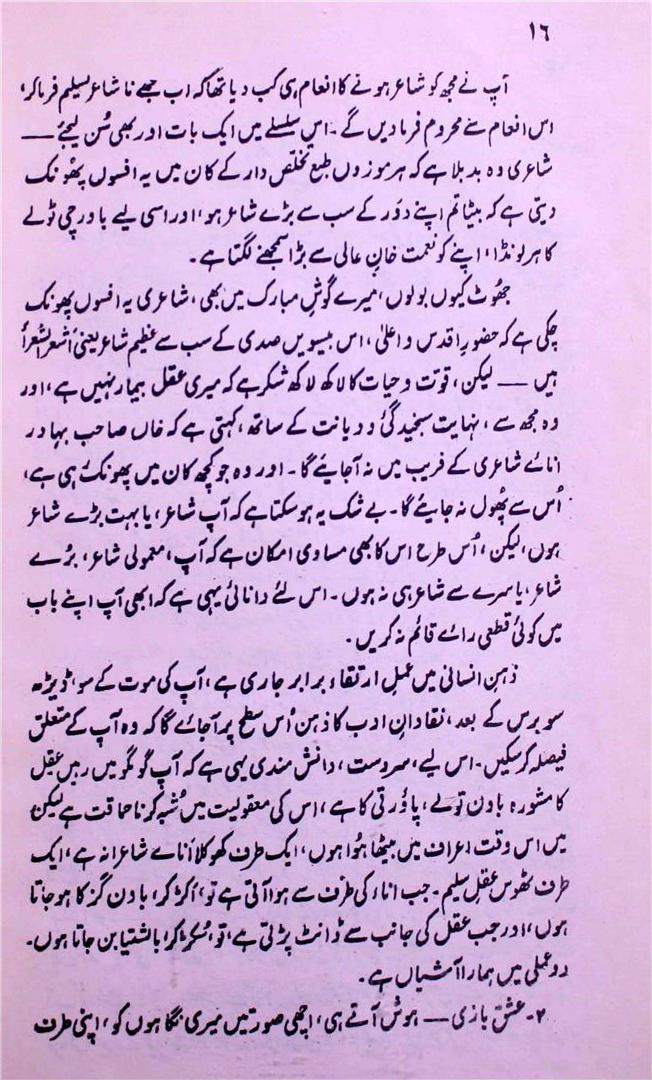 ۱۶
آپ نے مجھ کو شاعر ہونے کا انعام ہی کب دیا تھا کہ اب مجھے نا شاعر تسلیم فرما کر،
اس انعام سے محروم فرما دیں گے۔ اس سلسلے میں ایک بات اور بھی سُن لیجئے ——
شاعری وہ بد بلا ہے کہ ہر موزوں طبع تخلّص دار کے کان میں یہ افسوں پھونک
دیتی ہے کہ بیٹا تم اپنے دَور کے سب سے بڑے شاعر ہو، اور اسی لیے باورچی ٹولے
کا ہر لونڈا، اپنے کو نعمت خانِ عالی سے بڑا سمجھنے لگتا ہے۔
جھوٹ کیوں بولوں، میرے گوشِ مبارک میں بھی، شاعری یہ افسوں پھونک
چکی ہے کہ حضورِ اقدس و اعلیٰ، اس بیسویں صدی کے سب سے عظیم شاعر یعنی اَشعر الشعرأ
ہیں —— لیکن، قوّت و حیات کا لاکھ لاکھ شکر ہے کہ میری عقل بیمار نہیں ہے، اور
وہ مجھ سے، نہایت سنجیدگی و دیانت کے ساتھ، کہتی ہے کہ خاں صاحب بہادر
انائے شاعری کے فریب میں نہ آجایئے گا۔ اور وہ جو کچھ کان میں پھونک رہی ہے،
اُس سے پھُول نہ جایئے گا۔ بے شک یہ ہو سکتا ہے کہ آپ شاعر، یا بہت بڑے شاعر
ہوں، لیکن، اُس طرح اس کا بھی مساوی امکان ہے کہ آپ، معمولی شاعر، بُرے
شاعر، یا سرے سے شاعر ہی نہ ہوں۔ اس لئے دانائی یہی ہے کہ ابھی آپ اپنے باب
میں کوئی قطعی رائے قائم نہ کریں۔
ذہنِ انسانی میں عملِ ارتقاء برابر جاری ہے، آپ کی موت کے سو، ڈیڑھ
سو برس کے بعد، نقادانِ ادب کا ذہن اُس سطح پر آجائے گا کہ وہ آپ کے متعلق
فیصلہ کر سکیں۔ اس لیے، سرِ دست، دانش مندی یہی ہے کہ آپ گومگو میں رہیں عقل
کا مشورہ باون تولے، پاؤ رتی کا ہے، اس کی معقولیت میں شُبہ کرنا حماقت ہے لیکن
میں اس وقت اعراف میں بیٹھا ہُوا ہوں، ایک طرف کھوکلا اَناے شاعرانہ ہے، ایک
طرف ٹھوس عقلِ سلیم۔ جب اناء کی طرف سے ہوا آتی ہے تو، اکڑ کر، باون گز کا ہو جاتا
ہوں، اور جب عقل کی جانب سے ڈانٹ پڑتی ہے، تو، سُکڑ کر، بالشتیا بن جاتا ہوں۔
دو عملی میں ہمارا آشیاں ہے۔
۲۔ عشق بازی —— ہوش آتے ہی، اچھی صورتیں میری نگاہوں کو، اپنی طرف